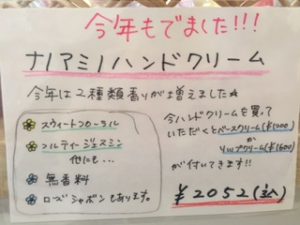 今年もでました!!!
ナノアミノハンドクリーム
今年は2種類香りが増えました★
スウィートフローラル
フルティージャスミン
他にも…
無香料
ローズシャボンもあります。
今ハンドクリームを買って
いただくとベースクリーム(¥1200)
か
リップクリーム(¥1600)
が付いてきます!!
¥2052(込)